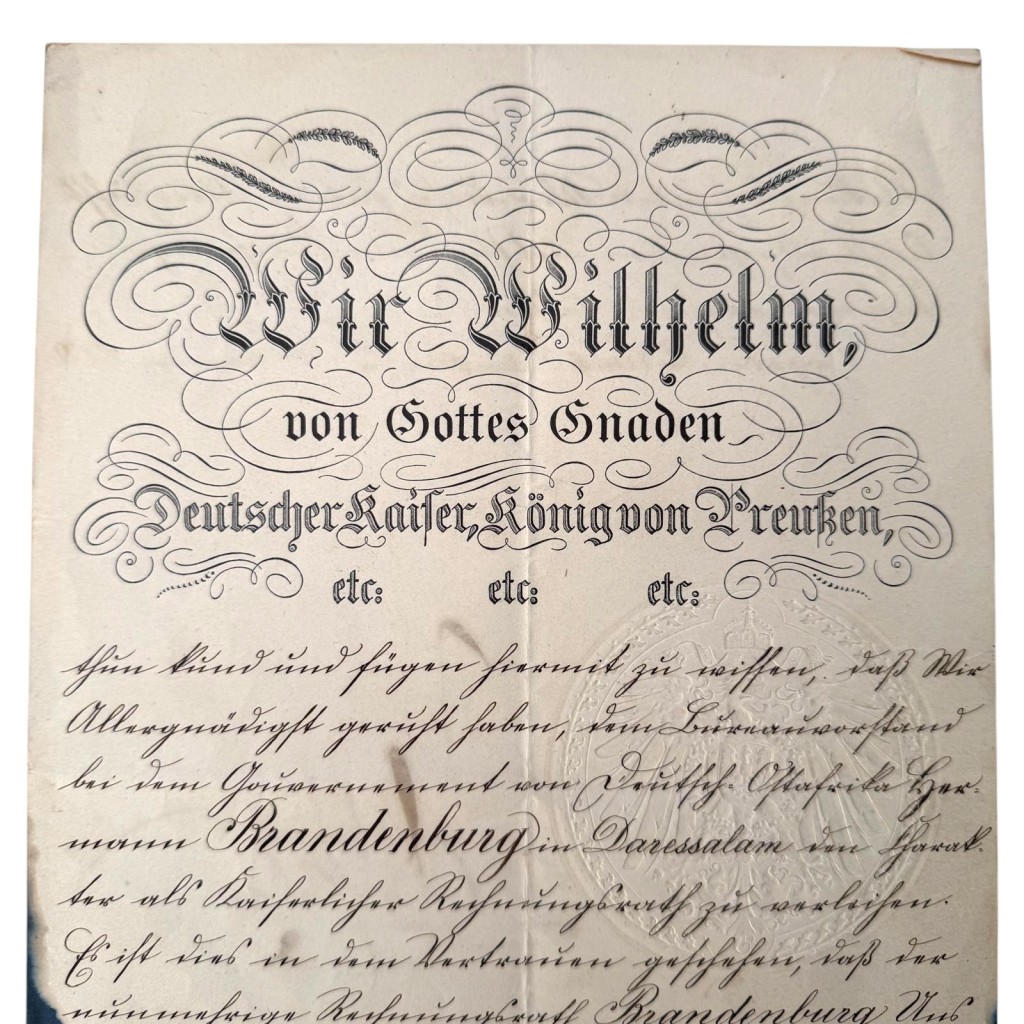 Wir Wilhelm,
von Gottes Gnaden
Deutscher Kaiser, König von Preußen,
etc: etc: etc:
thun kund und fügen hiermit zu wissen, daß Wir
Allergnädigst geruht haben, dem Bureauvorstand
bei dem Gouvernement von Deutsch-Ostafrika Her-
mann Brandenburg in Daressalam den Charak-
ter als Kaiserlicher Rechnungsrath zu verleihen.
Es ist dies in dem Vertrauen geschehen, daß der
nunmehrige Rechnungsrath Brandenburg Uns